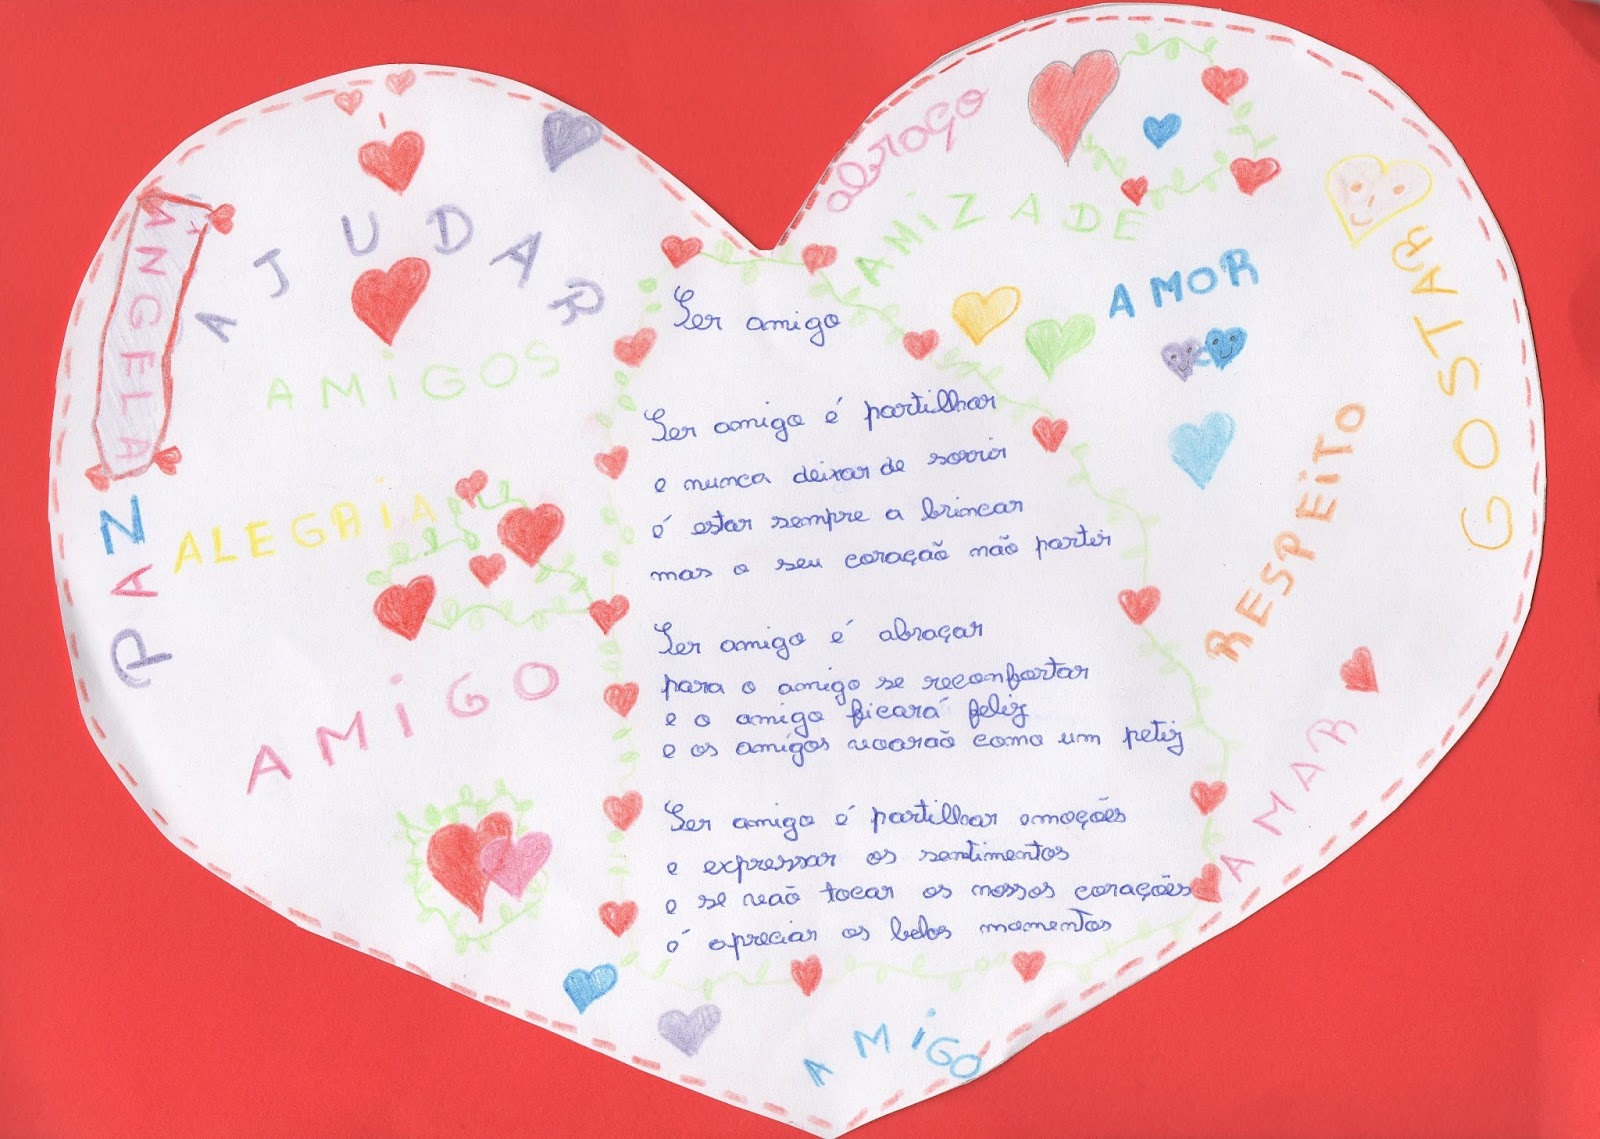 ÂNGELA
AJUDAR
AMiGOS
PAZ
ALEGRiA
AMiGO
abraço
AMiZADE
AMOR
GOSTAR
RESPEiTO
AMAR
AMiGO
Ser amigo
Ser amigo é partilhar
e nunca deixar de sorrir
é estar sempre a brincar
mas o seu coração não partir
Ser amigo é abraçar
para o amigo se reconfortar
e o amigo ficará feliz
e os amigos voarão como um petiz
Ser amigo é partilhar emoções
e expressar os sentimentos
e se vão tocar os nossos corações
é apreciar os belos momentos